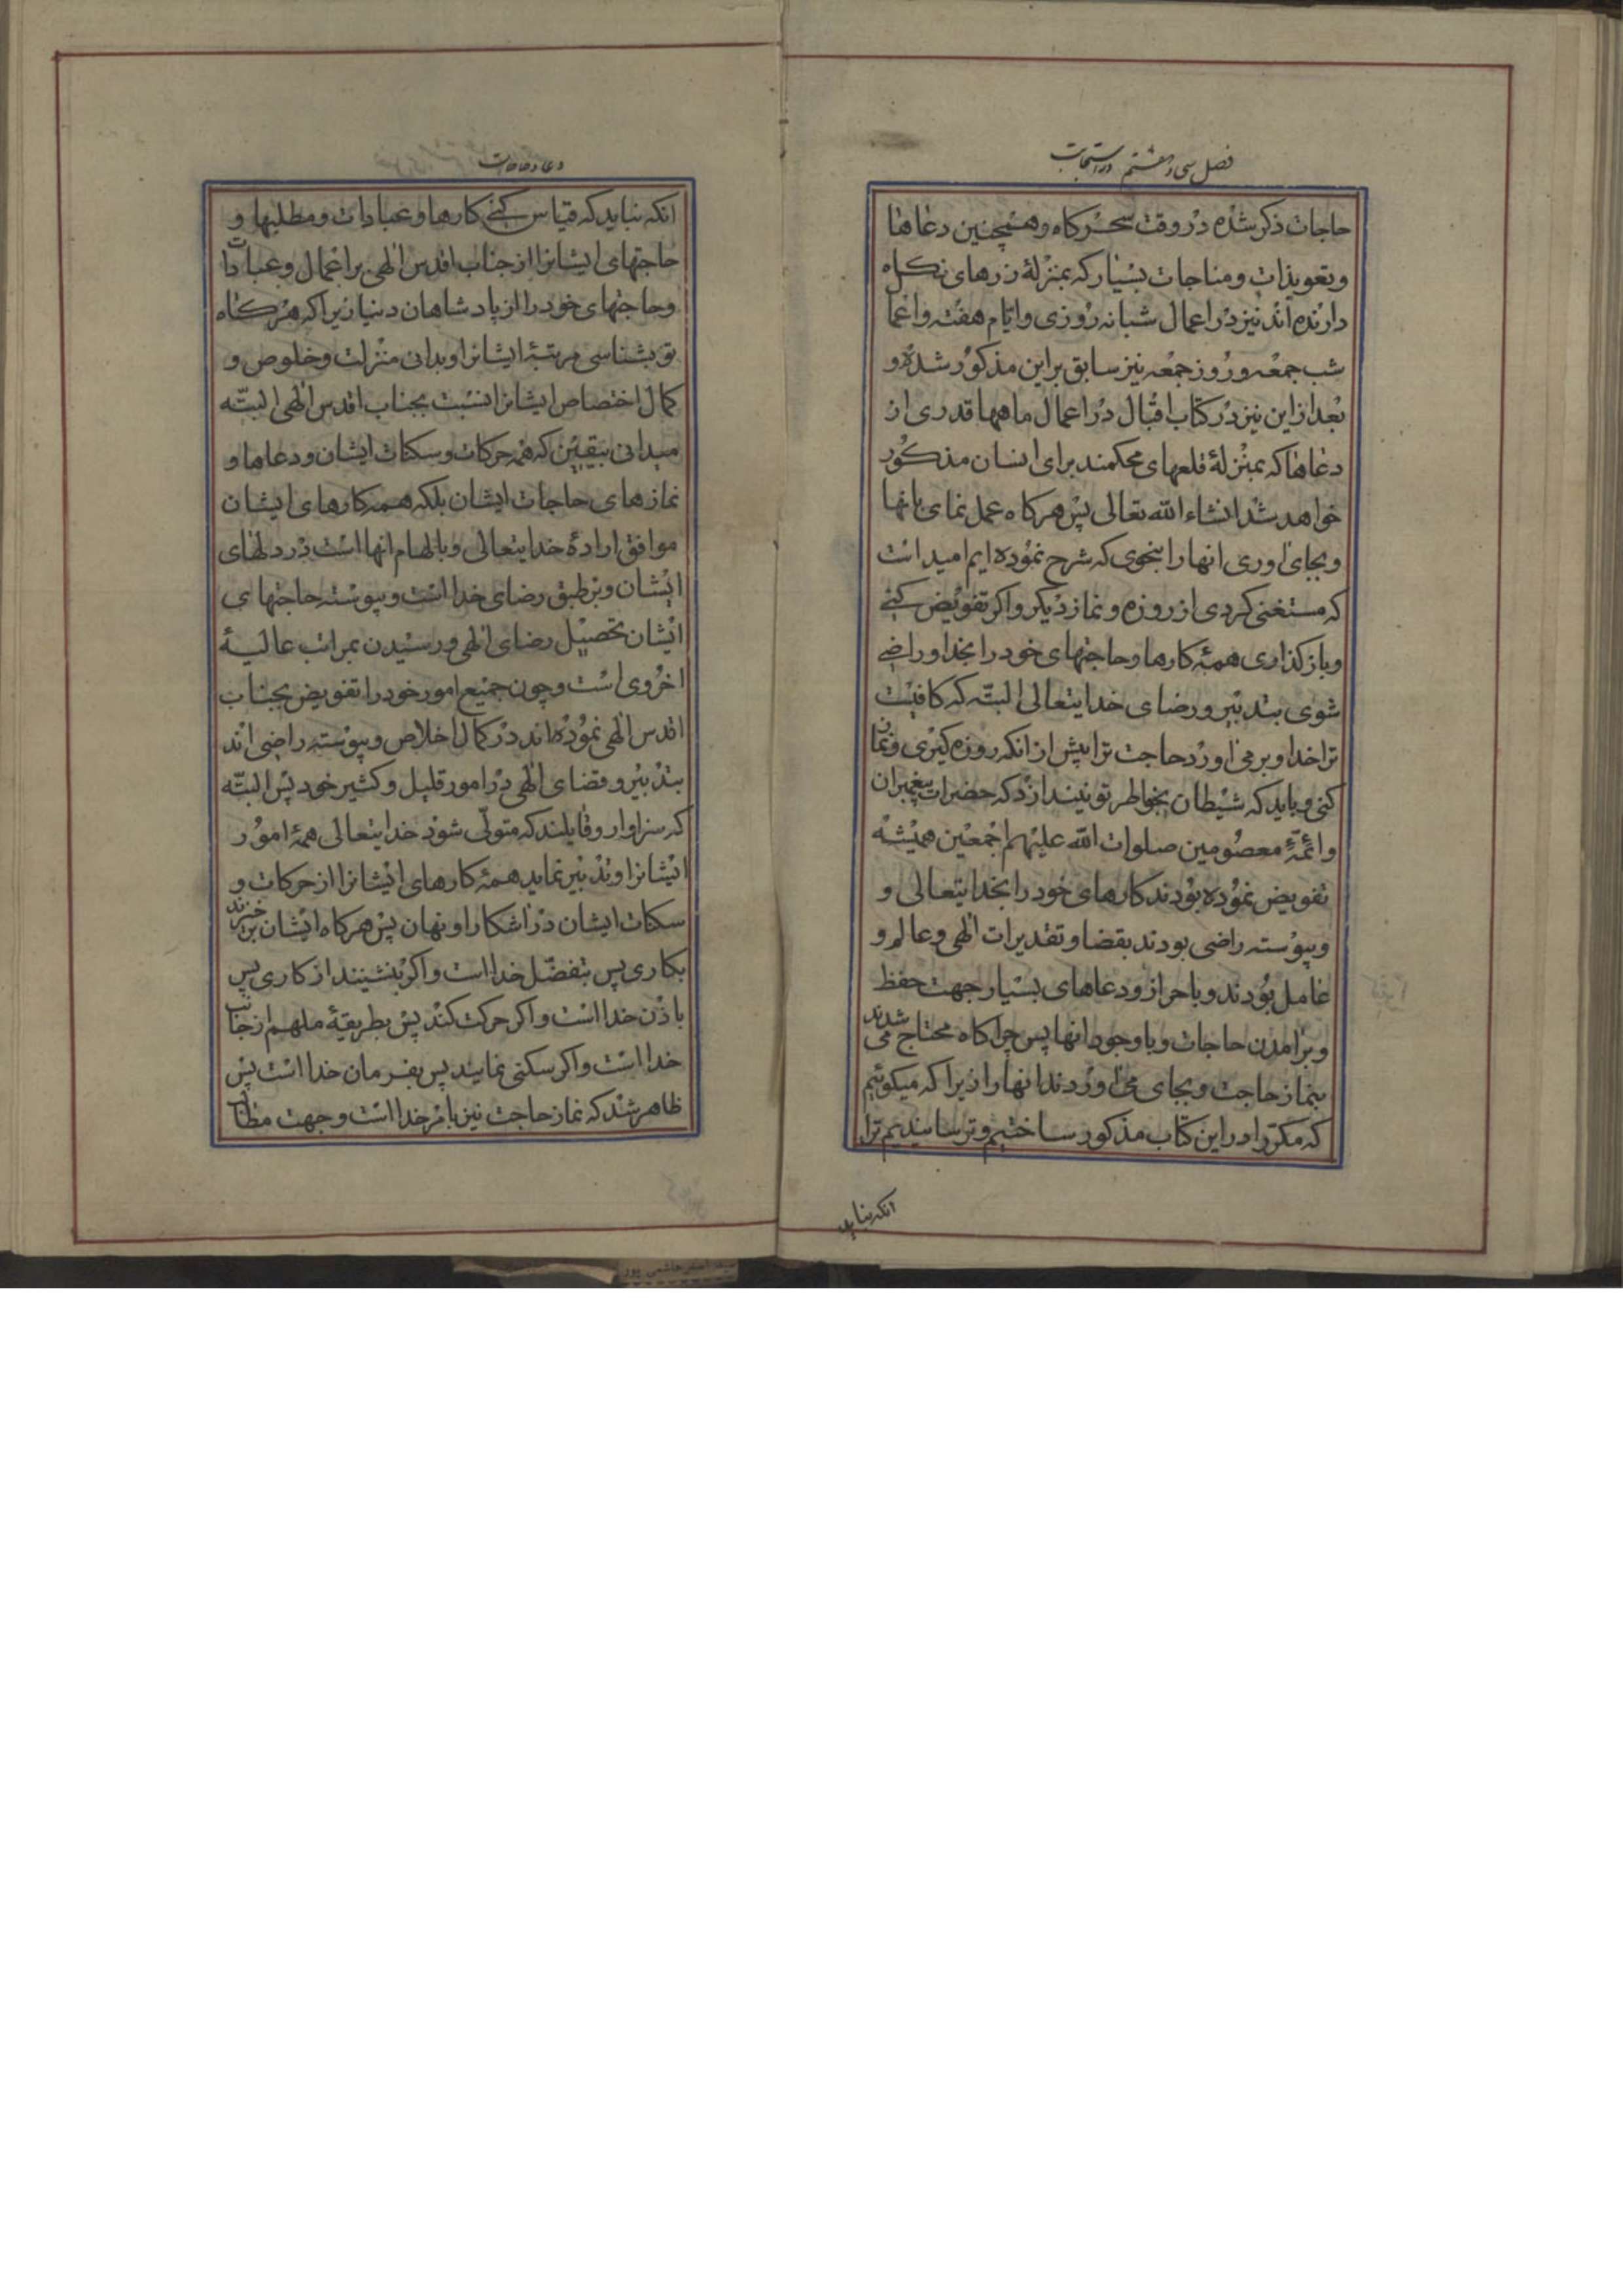 فصل سی و هشتم در استجابت
حاجات ذکر شده در وقت سحرکاه وهمچنین دعاها
وتعویذات ومناجات بسیار که بمنزلهٔ زرهای نکاه
دارنده اند نیز در اعمال شبانه روزی وایام هفته واعما
شب جمعه وروز جمعه نیز سابق براین مذکور شده و
بعد ازاین نیز در کتاب اقبال در اعمال ماهها قدری از
دعاها که بمنزلهٔ قلعهای محکمند برای انسان مذکور
خواهد شد انشاء الله تعالی پس هرکاه عمل نمای بانها
وبجای اوری انها را بنحوی که شرح نموده ایم امید است
که مستغنی کردی از روزه و نماز دیکر واکر تفویض کنی
وباز کذاری همهٔ کارها وحاجتهای خود را بخدا وراضی
شوی بتدبیر ورضای خدایتعالی البتّه که کافیست
ترا خدا وبرمی اورد حاجت ترا پیش از انکه روزه کیری ونما
کنی وباید که شیطان بخواطر تو نیندازد که حضرات پیغمبران
وائمّهٔ معصومین صلوات الله علیهم اجمعین همیشه
تفویض نموده بودند کارهای خود را بخدایتعالی و
وپیوسته راضی بودند بقضا وتقدیرات الهی وعالم و
عامل بودند وباحراز ودعاهای بسیار جهت حفظ
وبرامدن حاجات وباوجود انها پس چرا کاه محتاج می شدند
بنماز حاجت وبجای می اوردند انها را زیرا که میکوئیم
که مکرّر در این کتاب مذکور ساختیم وترسانیدیم ترا
انکه نباید
دعا و حاجات
انکه نباید که قیاس کنی کارها وعبادات ومطلبها و
حاجتهای ایشانرا از جناب اقدس الهی براعمال وعبادات
وحاجتهای خود را از پادشاهان دنیا زیرا که هرکاه
تو بشناسی مرتبهٔ ایشانرا وبدانی منزلت وخلوص و
کمال اختصاص ایشانرا نسبت بجناب اقدس الهی البتّه
میدانی بیقین که همه حرکات وسکنات ایشان ودعاها و
نمازهای حاجات ایشان بلکه همه کارهای ایشان
موافق ارادهٔ خدایتعالی وبالهام انها است در دلهای
ایشان وبرطبق رضای خدا است وپیوسته حاجتهای
ایشان تحصیل رضای الهی ورسیدن بمراتب عالیهٔ
اخروی است وچون جمیع امور خود را تفویض بجناب
اقدس الهی نموده اند در کمال اخلاص وپیوسته راضی اند
بتدبیر وقضای الهی در امور قلیل وکثیر خود پس البتّه
که سزاوار وقابلند که متولّی شود خدایتعالی همهٔ امور
ایشانرا وتدبیر نماید همهٔ کارهای ایشانرا از حرکات و
سکنات ایشان در اشکارا ونهان پس هرکاه ایشان برخیزند
بکاری پس بتفضّل خدا است واکر بنشینند از کاری پس
باذن خدا است واکر حرکت کنند پس بطریقهٔ ملهم از جانب
خدا است واکر سکنی نمایند پس بفرمان خدا است پس
ظاهر شد که نماز حاجت نیز بامر خدا است وجهت مطالب